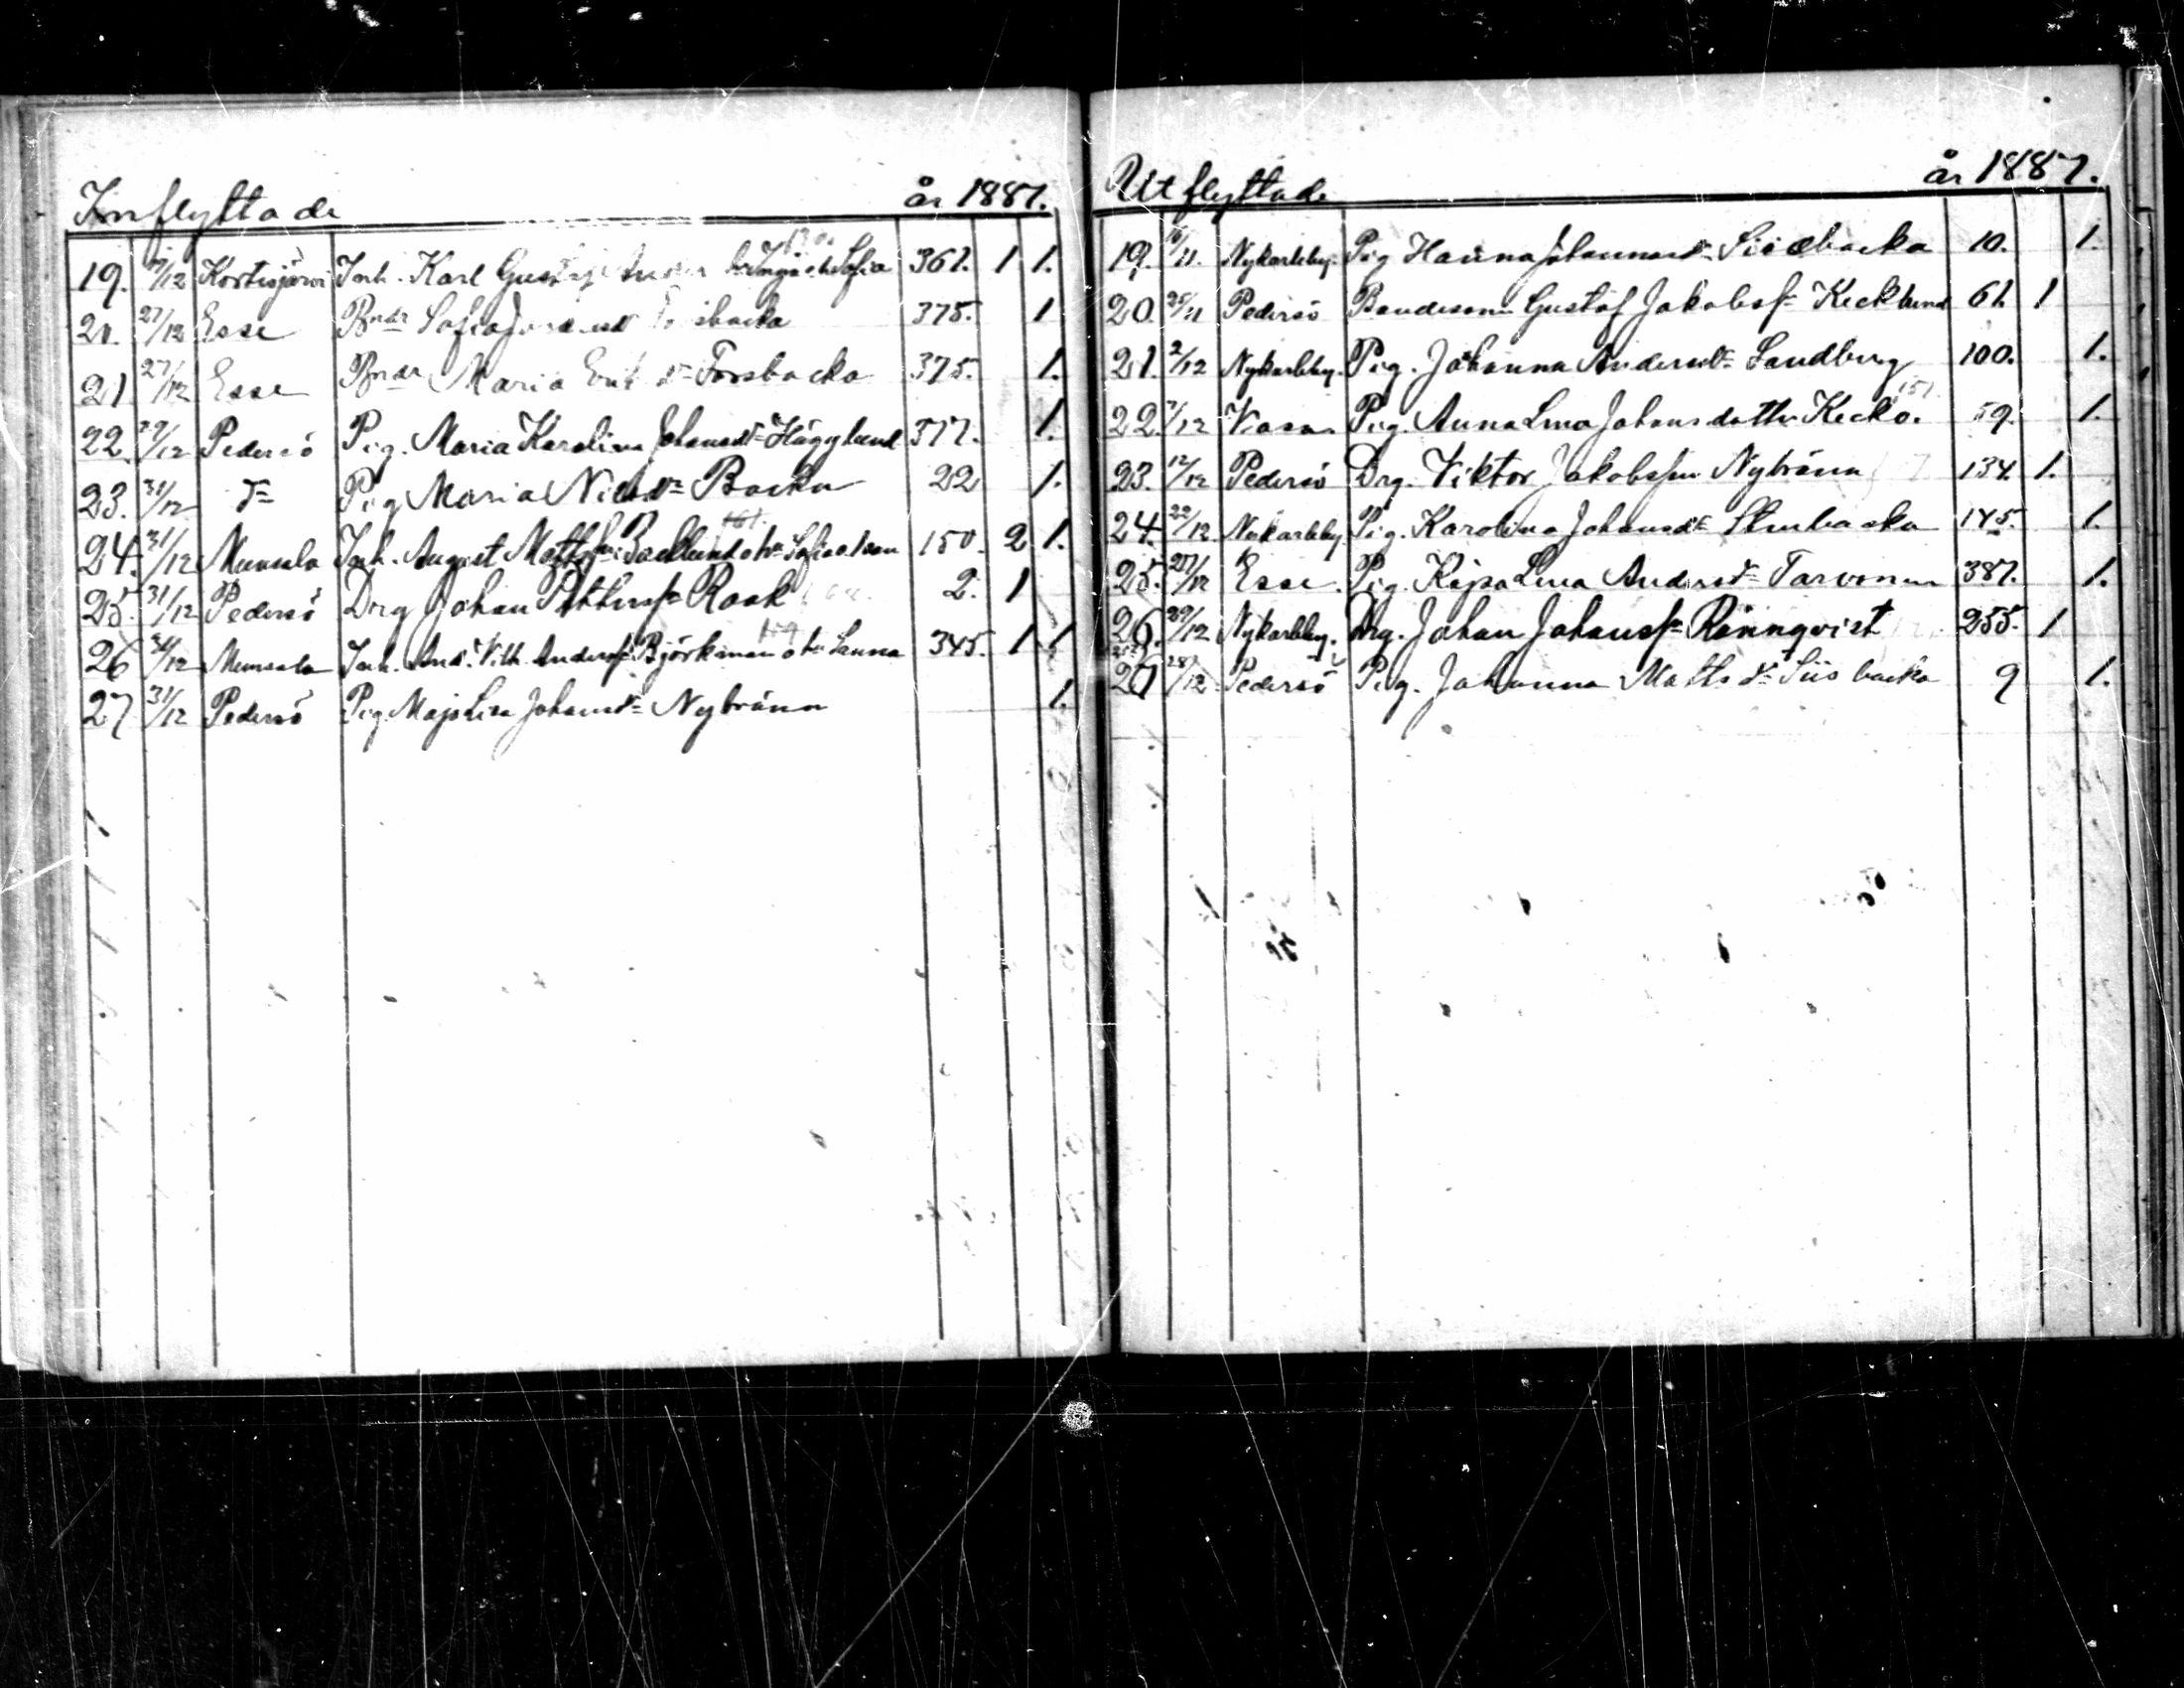 Inflyttade år 1887.
19. 19/12 Kortesjärvi Inh. Karl Gustaf Sofia 361. 1 1.
20. 27/12 Esse Bndr Sofia 375. 1
21 27/12 Esse Bndr Maria Erik dr Forsbacka 375. 1.
22. 29/12 Pedersö Pig. Maria Karolina Johansdr Hägglund 377. 1.
23. 31/12 do Pig Maria Nilsdr Backa 22 1.
161.
24. 31/12 Munsala Inh. August Mattss Backlund o hu Sofia o 150. 2 1.
25. 31/12 Pedersö Drg Johan Petterss Rank 2. 1
159
26 31/12 Munsala Inh. And. Vilh. Anderss Björkman o hu Sanna 345. 1 1
27 31/12 Pedersö Pig. Maja Lisa Johansdr Nybränn 1.
Utflyttade år 1887.
19. 16/11. Nykarleby. Pig Hanna Johannesdr 10. 1.
20. 25/11 Pedersö Bondeson Gustaf Jakobss Kecklund 61 1
21. 2/12 Nykarleby. Pig. Johanna Andersdr Sandberg 100. 1.
157.
22. 7/12 Vasa Pig. Anna Lena Johansdotter Kecko. 59. 1.
23. 12/12 Pedersö Drg. Viktor Jakobsson Nybränn 134. 1.
24. 22/12 Nykarleby Pig. Karolina Johansdr 145. 1.
25. 27/12 Esse. Pig. Kajsa Lena Andersdr Tarvonen 387. 1.
26. 29/12 Nykarleby. Drg. Johan Johanss Rönnqvist 255. 1
27 28/12 Pedersö Pig. Johanna Matts dr Siisbacka 9 1.